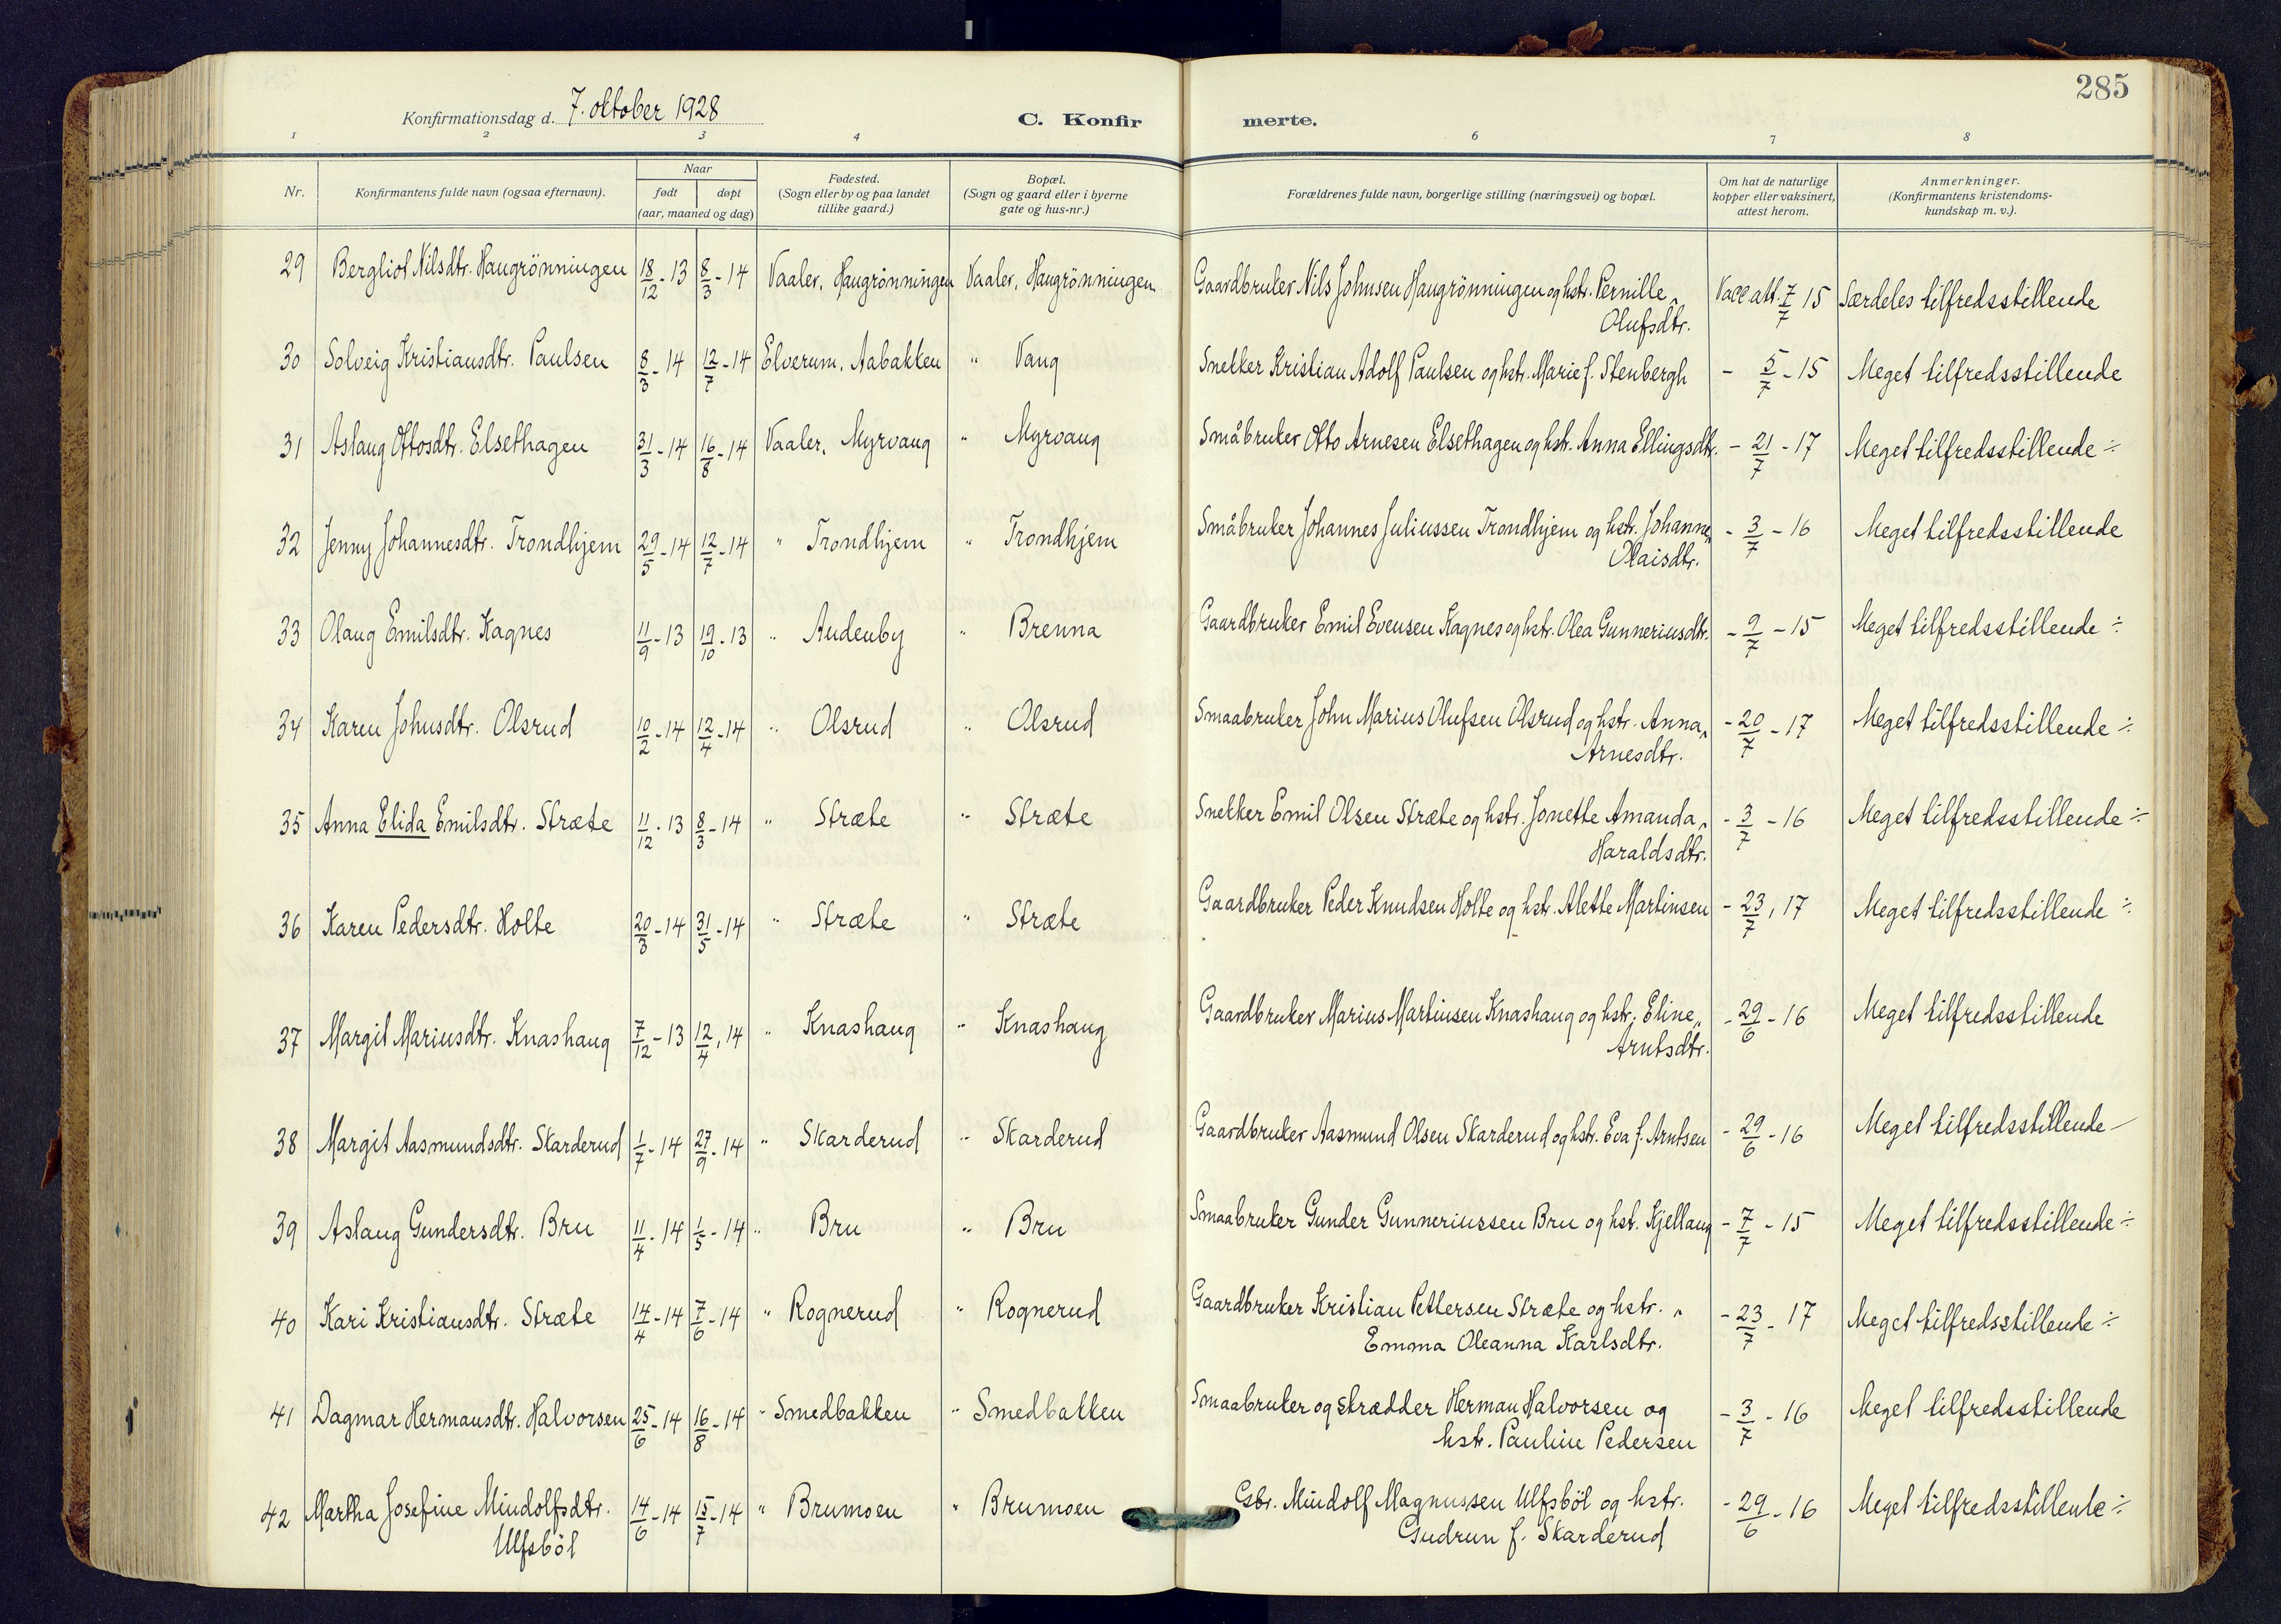 285
Konfirmationsdag d. 7. oktober 1928
C. Konfirmerte.
1 2 3 4 6 7 8
Nr. | Konfirmantens fulde navn (ogsaa efternavn). | Naar født døpt (aar, maaned og dag) | Fødested. (Sogn eller by og paa landet tillike gaard.) | Bopæl. (Sogn og gaard eller i byerne gate og hus-nr.) | Forældrenes fulde navn, borgerlige stilling (næringsvei) og bopæl. | Om hat de naturlige kopper eller vaksinert, attest herom. | Anmerkninger. (Konfirmantens kristendoms-kundskap m. v.).
29 Bergliot Nilsdtr. Haugrönningen 18/12-13 8/3-14 Vaaler, Haugrönningen Vaaler, Haugrönningen Gaardbruker Nils Johnsen Haugrönningen og hstr. Pernille Olufsdtr. Vacc att. 7/7 15 Særdeles tilfredsstillende
30 Solveig Kristiansdtr. Paulsen 8/3-14 12/7-14 Elverum, Aabakken " Vang Snekker Kristian Adolf Paulsen og hstr. Marie f. Stenbergh - 5/7-15 Meget tilfredsstillende
31 Aslaug Ottosdtr. Elsethagen 31/3-14 16/8-14 Vaaler, Myrvang " Myrvang Småbruker Otto Arnesen Elsethagen og hstr. Anna Ellingsdtr. - 21/7-17 Meget tilfredsstillende ÷
32 Jenny Johannesdtr. Trondhjem 29/5-14 12/7-14 " Trondhjem " Trondhjem Småbruker Johannes Juliussen Trondhjem og hstr. Johanne Olaisdtr. - 3/7-16 Meget tilfredsstillende
33 Olaug Emilsdtr. Kagnes 11/9-13 19/10-13 " Audenby " Brenna Gaardbruker Emil Evensen Kagnes og hstr. Olea Gunneriusdtr. - 9/7-15 Meget tilfredsstillende ÷
34 Karen Johnsdtr. Olsrud 10/2-14 12/4-14 " Olsrud " Olsrud Smaabruker John Marius Olufsen Olsrud og hstr. Anna Arnesdtr. - 20/7-17 Meget tilfredsstillende ÷
35 Anna Elida Emilsdtr. Stræte 11/12-13 8/3-14 " Stræte " Stræte Snekker Emil Olsen Stræte og hstr. Jonette Amanda Haraldsdtr. - 3/7-16 Meget tilfredsstillende ÷
36 Karen Pedersdtr. Holte 20/3-14 31/5-14 " Stræte " Stræte Gaardbruker Peder Knudsen Holte og hstr. Alette Martinsen - 23/7, 17 Meget tilfredsstillende ÷
37 Margit Mariusdtr. Knashaug 7/12-13 12/4, 14 " Knashaug " Knashaug Gaardbruker Marius Martinsen Knashaug og hstr. Eline Arntsdtr. - 29/6-16 Meget tilfredsstillende
38 Margit Aasmundsdtr. Skarderud 1/7-14 27/9-14 " Skarderud " Skarderud Gaardbruker Aasmund Olsen Skarderud og hstr. Eva f. Arntsen - 29/6-16 Meget tilfredsstillende -
39 Aslaug Gundersdtr. Bru 11/4-14 1/5-14 " Bru " Bru Smaabruker Gunder Gunneriussen Bru og hst. Kjellaug - 7/7-15 Meget tilfredsstillende ÷
40 Kari Kristiansdtr. Stræte 14/4-14 7/6-14 " Rognerud " Rognerud Gaardbruker Kristian Pettersen Stræte og hstr. Emma Oleanna Karlsdtr. - 23/7-17 Meget tilfredsstillende ÷
41 Dagmar Hermansdtr. Halvorsen 25/6-14 16/8-14 " Smedbakken " Smedbakken Smaabruker og skrædder Herman Halvorsen og hstr. Pauline Pedersen - 3/7-16 Meget tilfredsstillende
42 Martha Josefine Mindolfsdtr. Ulfsböl 14/6-14 15/7-14 " Brumoen " Brumoen Gbr. Mindolf Magnussen Ulfsböl og hstr. Gudrun f. Skarderud - 29/6-16 Meget tilfredsstillende ÷